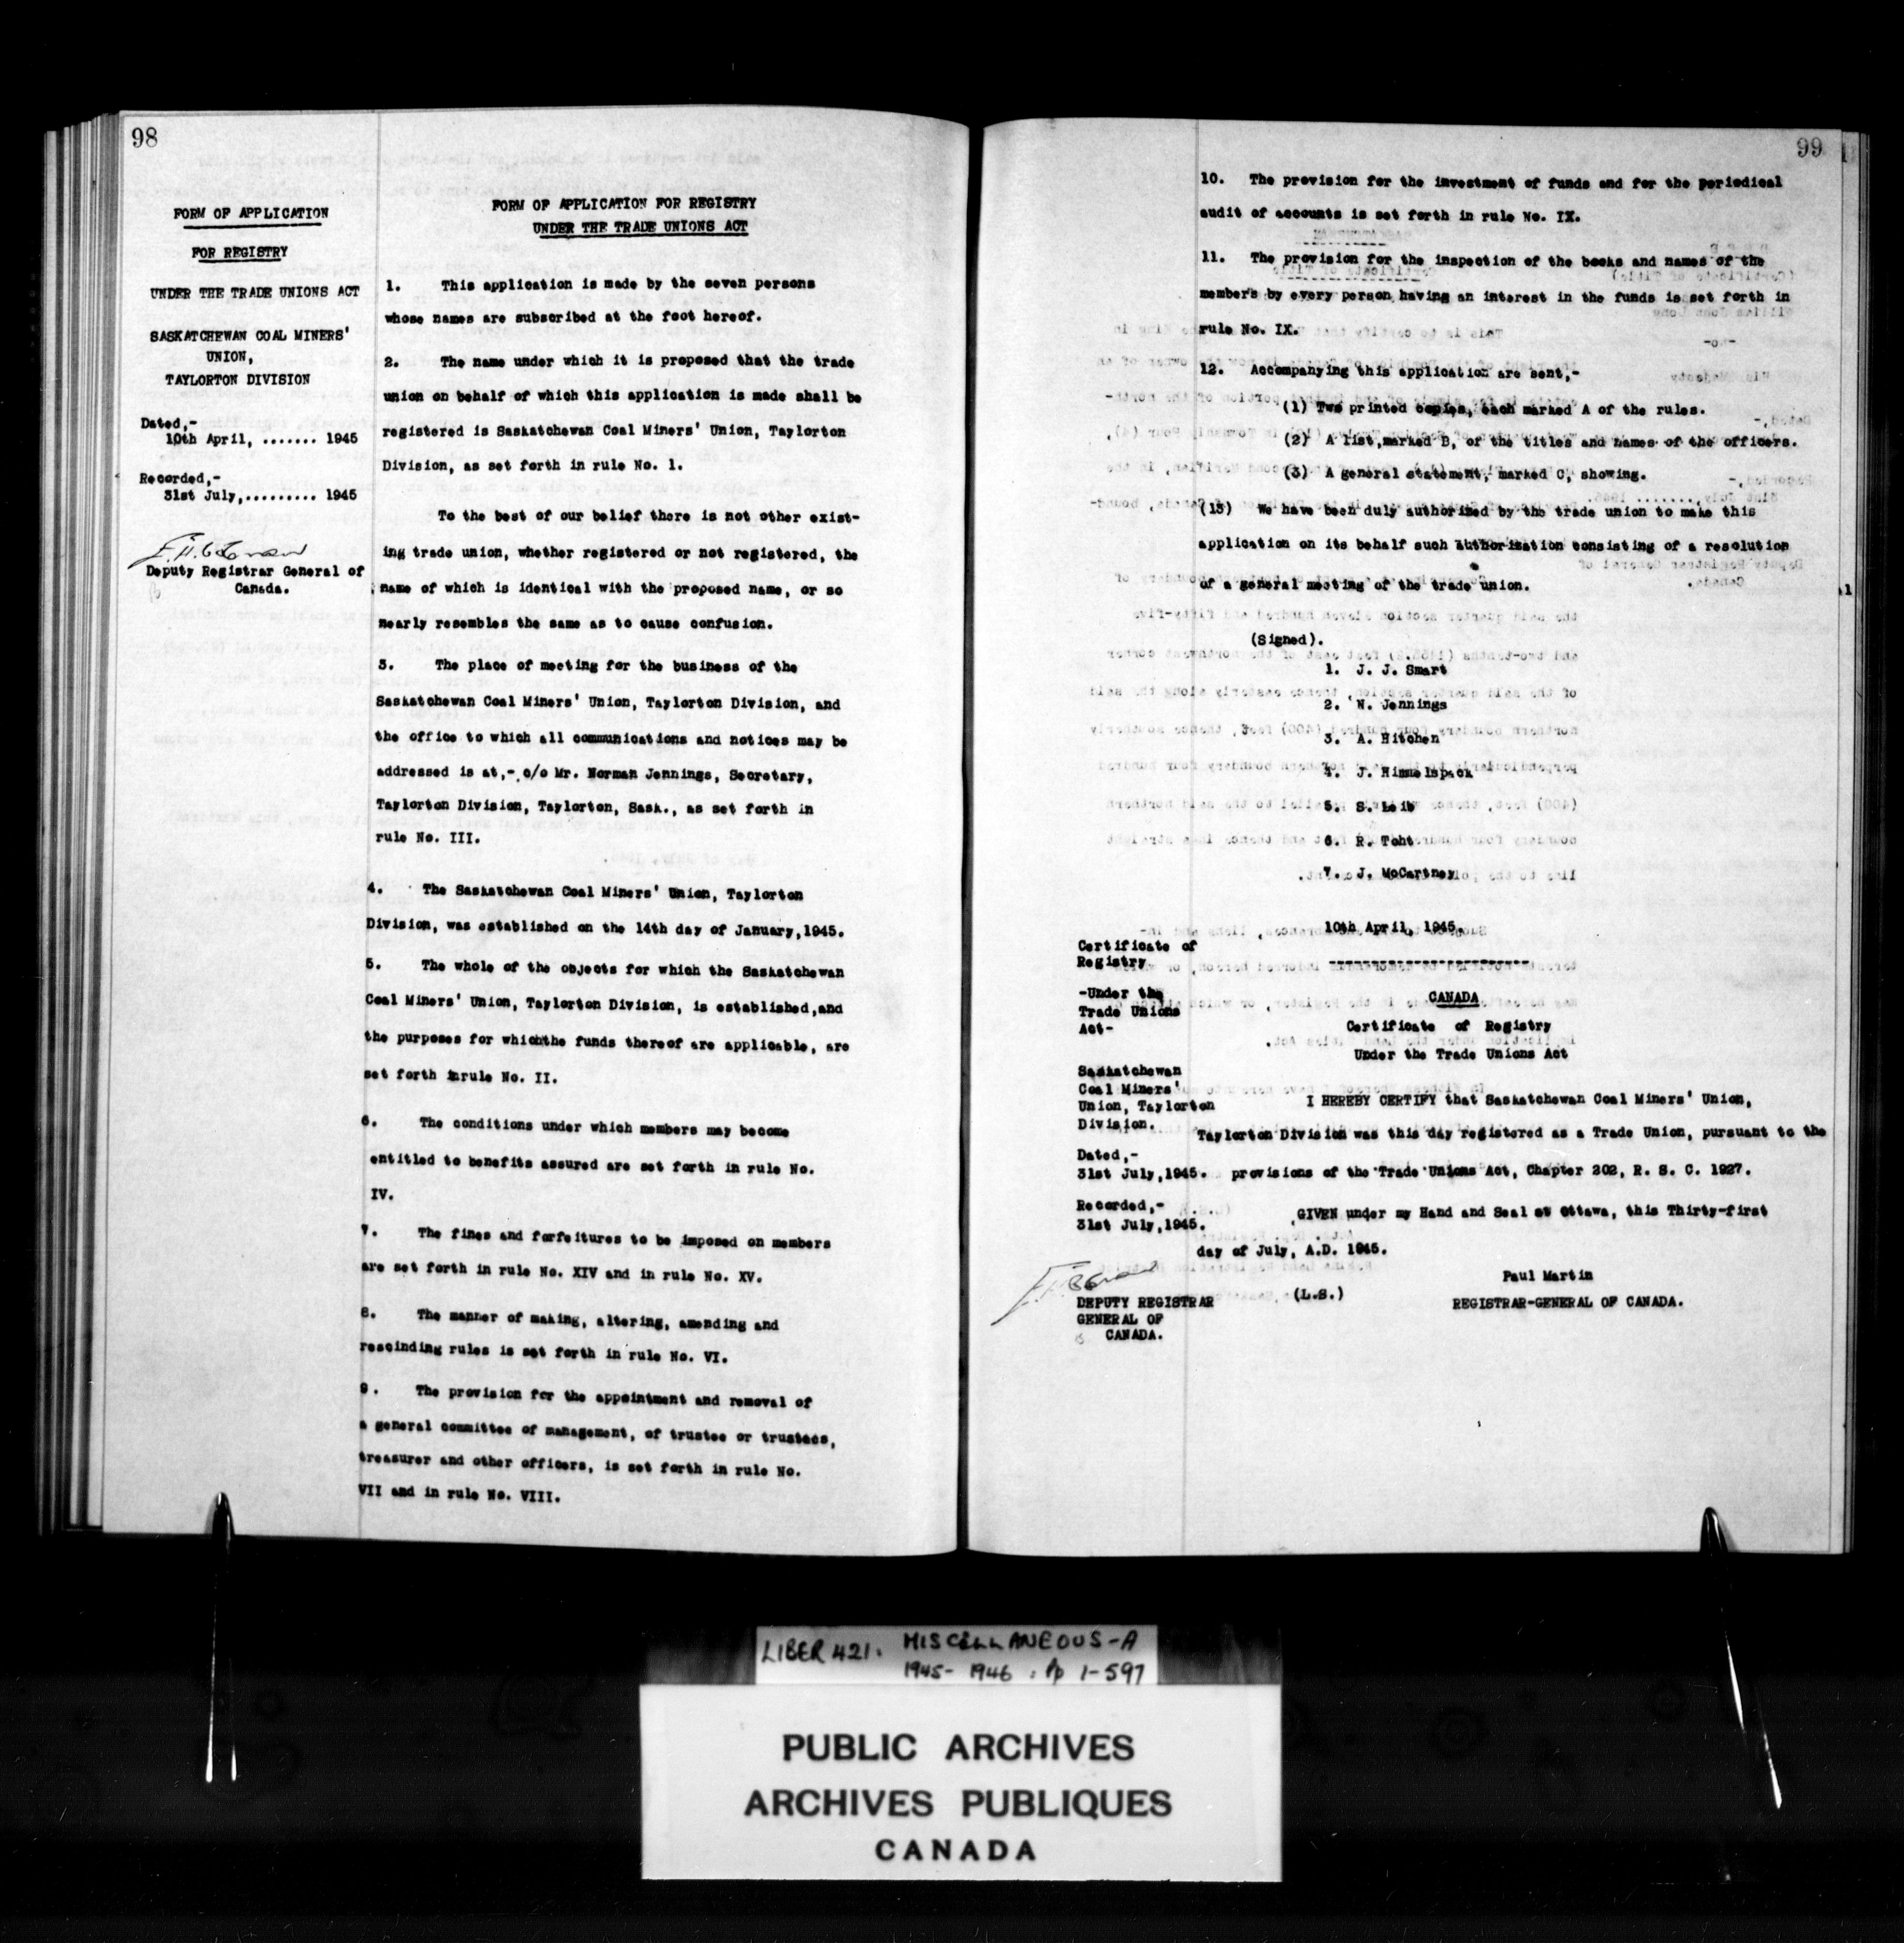 98
FORM OF APPLICATION
FOR REGISTRY
UNDER THE TRADE UNIONS ACT
SASKATCHEWAN COAL MINERS'
UNION,
TAYLORTON DIVISION
Dated,-
10th April, ....... 1945
Recorded,-
31st July,......... 1945
Deputy Registrar General of
Canada.
FORM OF APPLICATION FOR REGISTRY
UNDER THE TRADE UNIONS ACT
1. This application is made by the seven persons
whose names are subscribed at the foot hereof.
2. The name under which it is proposed that the trade
union on behalf of which this application is made shall be
registered is Saskatchewan Coal Miners' Union, Taylorton
Division, as set forth in rule No. 1.
To the best of our belief there is not other exist-
ing trade union, whether registered or not registered, the
name of which is identical with the proposed name, or so
nearly resembles the same as to cause confusion.
3. The place of meeting for the business of the
Saskatchewan Coal Miners' Union, Taylorton Division, and
the office to which all communications and notices may be
addressed is at,- c/o Mr. Norman Jennings, Secretary,
Taylorton Division, Taylorton, Sask., as set forth in
rule No. III.
4. The Saskatchewan Coal Miners' Union, Taylorton
Division, was established on the 14th day of January,1945.
5. The whole of the objects for which the Saskatchewan
Coal Miners' Union, Taylorton Division, is established,and
the purposes for whichthe funds thereof are applicable, are
set forth inrule No. II.
6. The conditions under which members may become
entitled to benefits assured are set forth in rule No.
IV.
7. The fines and forfeitures to be imposed on members
are set forth in rule No. XIV and in rule No. XV.
8. The manner of making, altering, amending and
rescinding rules is set forth in rule No. VI.
9. The provision for the appointment and removal of
a general committee of management, of trustee or trustees,
treasurer and other officers, is set forth in rule No.
VII and in rule No. VIII.
99
10. The provision for the investment of funds and for the periodical
audit of accounts is set forth in rule No. IX.
11. The provision for the inspection of the books and names of the
members by every person having an interest in the funds is set forth in
rule No. IX.
12. Accompanying this application are sent,-
(1) Two printed copies, each marked A of the rules.
(2) A list,marked B, of the titles and names of the officers.
(3) A general statement, marked C, showing.
(13) We have been duly authorized by the trade union to make this
application on its behalf such authorization consisting of a resolution
of a general meeting of the trade union.
(Signed).
1. J. J. Smart
2. N. Jennings
3. A. Hitchen
4. J. Himmelspach
5. S. Leib
6. R. Toht
7. J. McCartney
10th April, 1945.
Certificate of
Registry
-Under the
Trade Unions
Act-
Saskatchewan
Coal Miners'
Union, Taylorton
Division.
Dated,-
31st July,1945.
Recorded,-
31st July,1945.
DEPUTY REGISTRAR
GENERAL OF
CANADA.
CANADA
Certificate of Registry
Under the Trade Unions Act
I HEREBY CERTIFY that Saskatchewan Coal Miners' Union,
Taylorton Division was this day registered as a Trade Union, pursuant to the
provisions of the Trade Unions Act, Chapter 202, R. S. C. 1927.
GIVEN under my Hand and Seal at Ottawa, this Thirty-first
day of July, A.D. 1945.
Paul Martin
(L.S.)
REGISTRAR-GENERAL OF CANADA.
LIBER 421. MISCELLANEOUS-A
1945- 1946 : Pp 1-597
PUBLIC ARCHIVES
ARCHIVES PUBLIQUES
CANADA